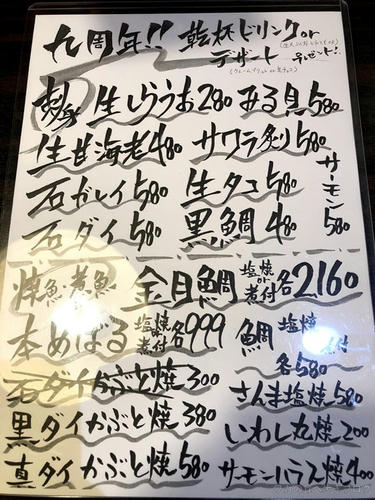 九周年!! 乾杯ドリンクor
デザート プレゼント!
刺身 生しらうお280 みる貝580
生甘海老480 サワラ炙り580
石ガレイ580 生タコ580
サーモン580
石ダイ580 黒鯛480
焼魚・煮魚 金目鯛 塩焼or煮付 各2160
本めばる 塩焼or煮付 各999 鯛 塩焼 煮付 各580
石ダイかぶと焼300 さんま塩焼580
黒ダイかぶと焼380 いわし丸焼200
真ダイかぶと焼580 サーモンハラス焼400